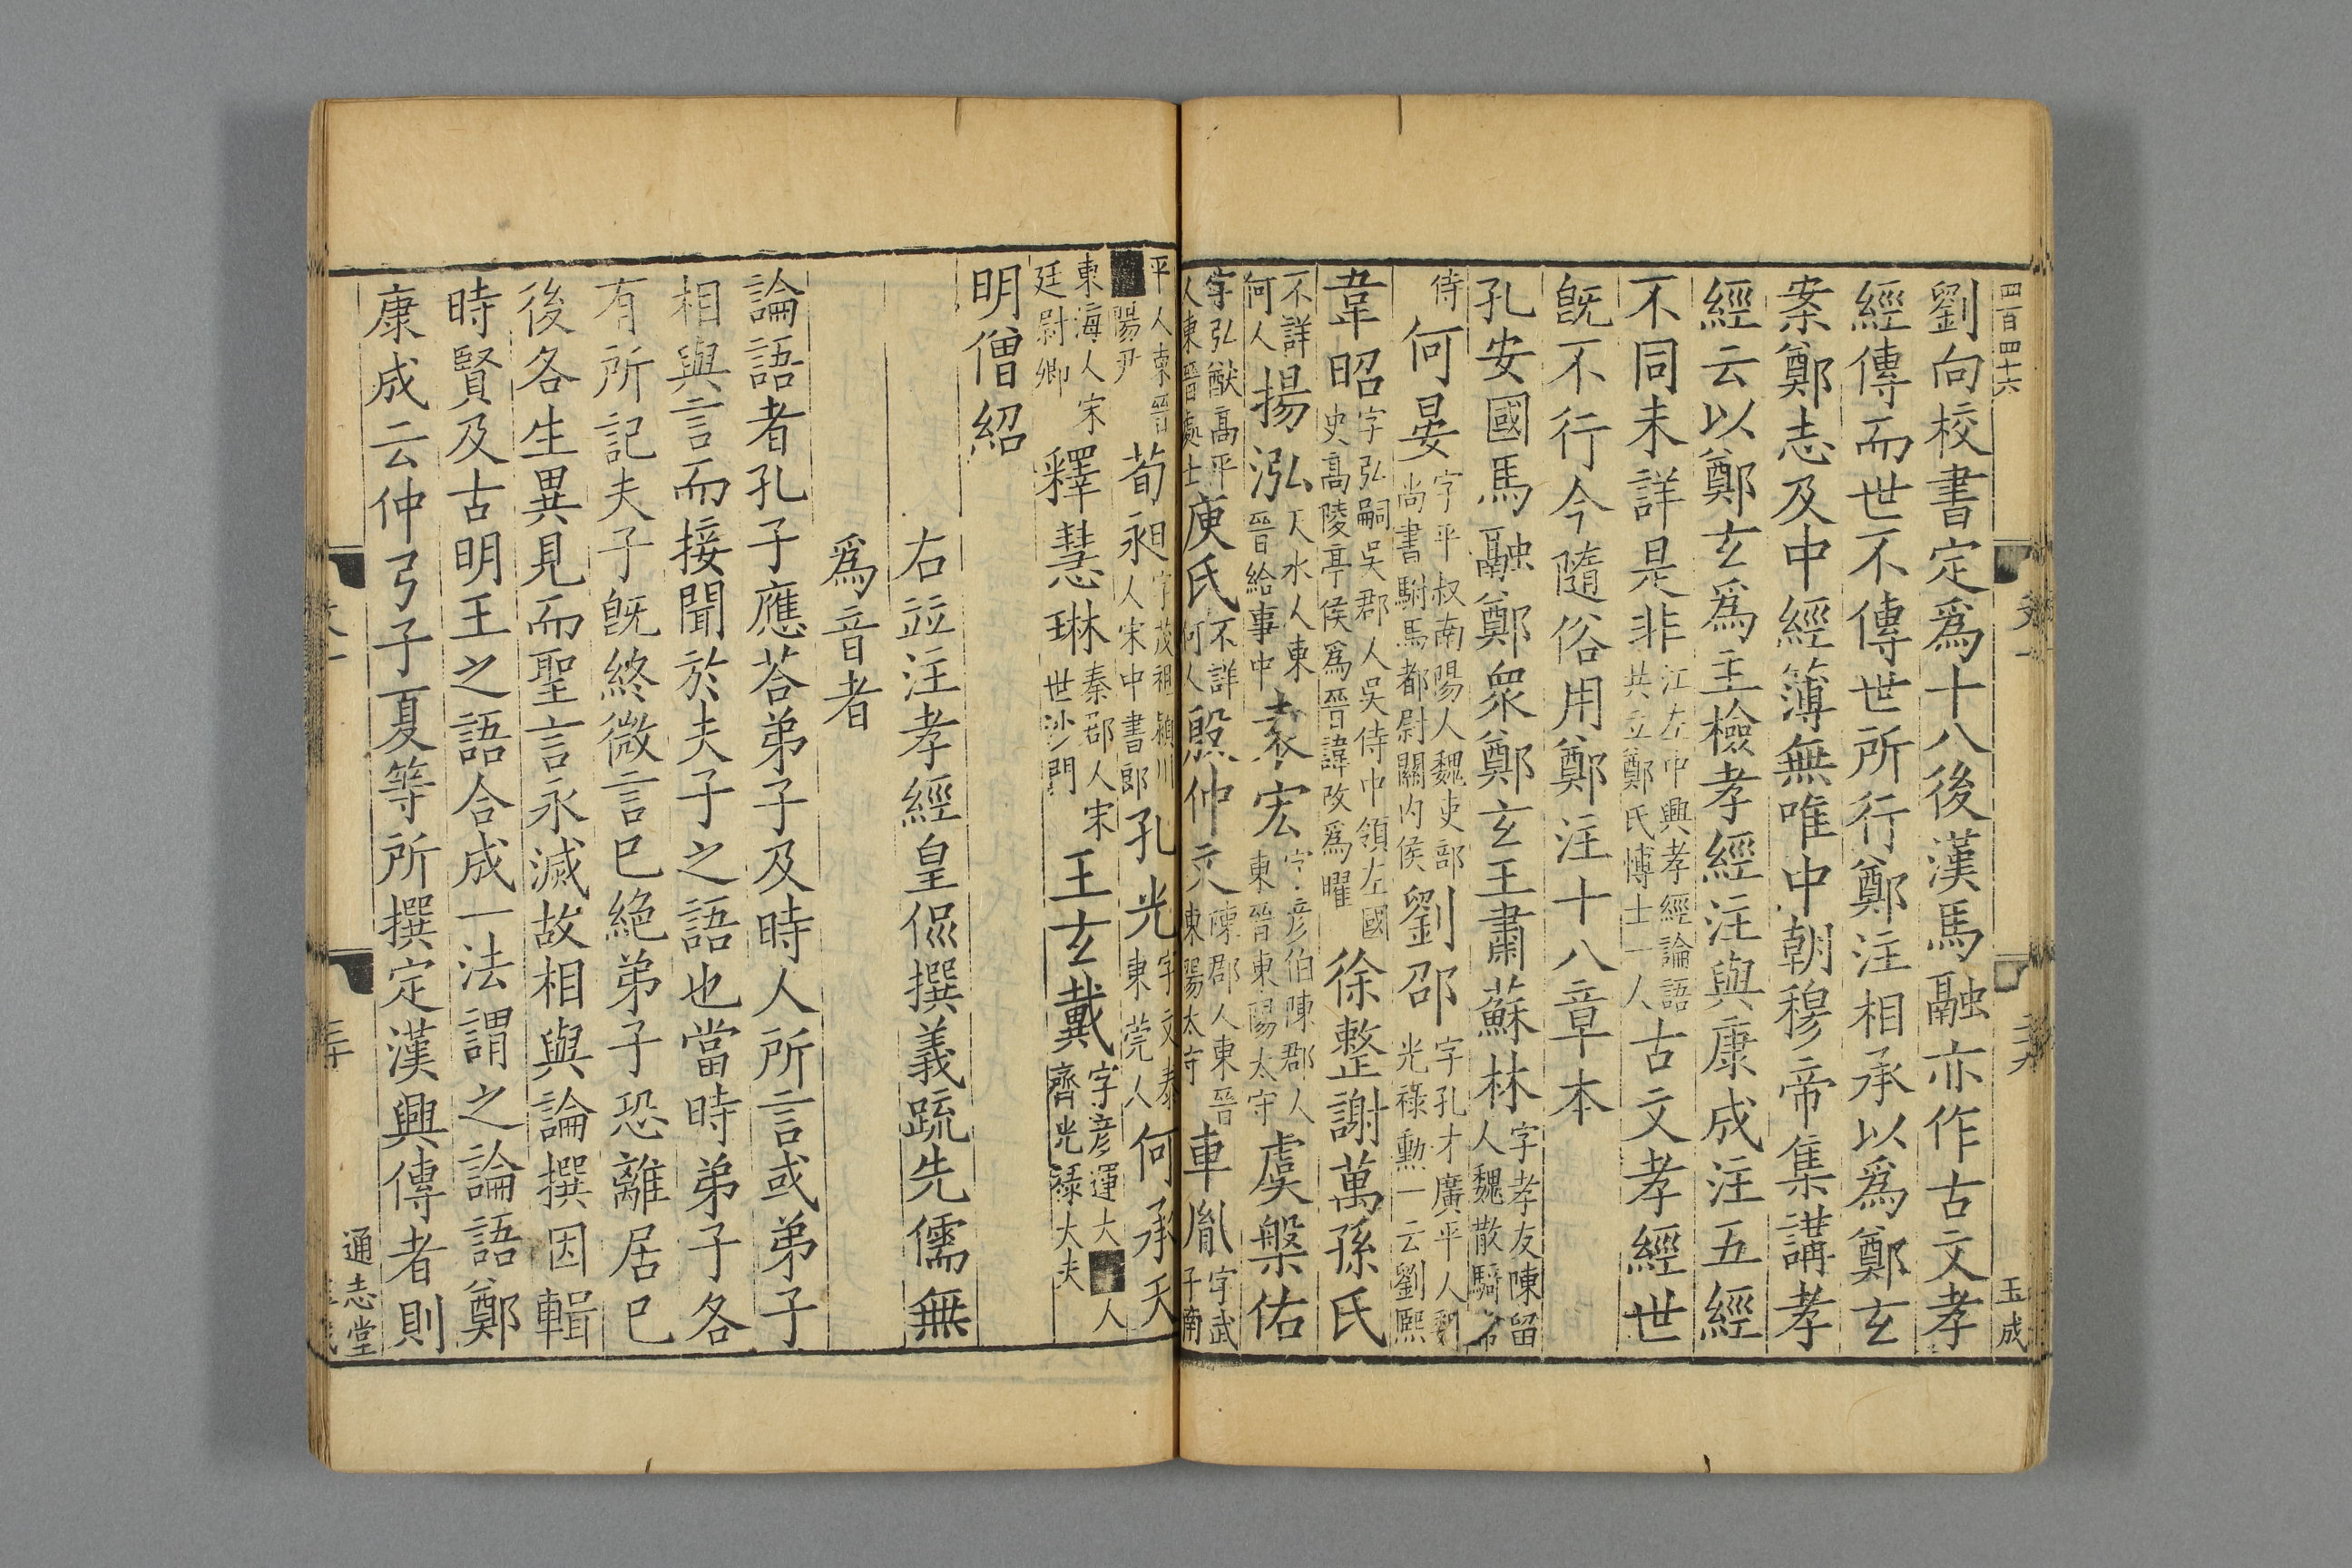 四百四十六
玉成
劉向校書定爲十八後漢馬融亦作古文孝
經傳而世不傳世所行鄭注相承以爲鄭玄
案鄭志及中經簿無唯中朝穆帝集講孝
經云以鄭玄爲主檢孝經注與康成注五經
不同未詳是非江左中興孝經論語共立鄭氏博士一人古文孝經世
旣不行今隨俗用鄭注十八章本
孔安國馬融鄭衆鄭玄王肅蘇林字孝友陳留人魏散騎常
侍何晏字平叔南陽人魏吏部尚書駙馬都尉關內侯劉邵字孔才廣平人魏光祿勲一云劉熙
韋昭字弘嗣吳郡人吳侍中領左國史高陵亭侯爲晉諱改爲曜徐整謝萬孫氏
不詳何人揚泓天水人東晉給事中袁宏字彦伯陳郡人東晉東陽太守虞槃佑
字弘猷高平人東晉處士庾氏不詳何人殷仲文陳郡人東晉東陽太守車胤字武子南
平人東晉陽尹荀昶字茂祖潁川人宋中書郎孔光字文泰東莞人何承天
東海人宋廷尉卿釋慧琳秦郡人宋世沙門王玄戴字彦運大人齊光祿大夫
明僧紹
右並注孝經皇侃撰義疏先儒無
爲音者
論語者孔子應荅弟子及時人所言或弟子
相與言而接聞於夫子之語也當時弟子各
有所記夫子旣終微言已絕弟子恐離居已
後各生異見而聖言永滅故相與論撰因輯
時賢及古明王之語合成一法謂之論語鄭
康成云仲弓子夏等所撰定漢興傳者則
通志堂